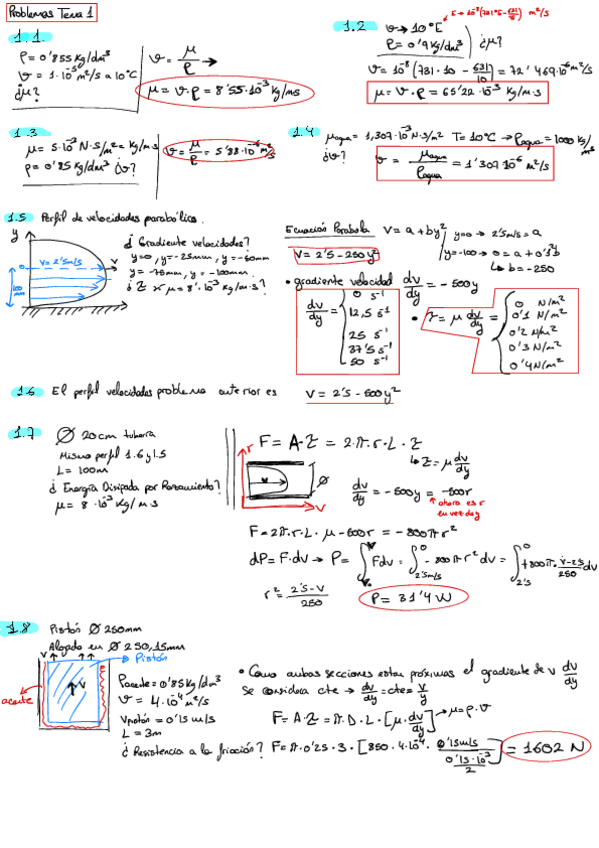 Problemas Tema 1
1.1.
ρ = 0'855 Kg/dm³
ν = 1·10⁻⁵ m²/s a 10°C
¿μ?
ν = μ/ρ →
μ = ν·ρ = 8'55·10⁻³ Kg/ms
1.2
ν → 10°E
ρ = 0'9 Kg/dm³
¿μ?
ν = 10⁻⁸(731·10 - 631/10) = 72'469·10⁻⁶ m²/s
μ = ν·ρ = 65'22·10⁻³ Kg/m·s
1.3
μ = 5·10⁻³ N·s/m² = Kg/m·s
ρ = 0'85 Kg/dm³ ¿ν?
ν = μ/ρ = 5'88·10⁻⁶ m²/s
1.4
μagua = 1,307·10⁻³ N·s/m² T = 10°C → ρagua = 1000 Kg/m³
¿ν?
ν = μagua/ρagua = 1'307·10⁻⁶ m²/s
1.5 Perfil de velocidades parabólico.
y
V = 2'5 m/s
v
0
100 mm
¿Gradiente velocidades?
y=0, y=-25mm, y=-50mm
y=-75mm, y=-100mm.
¿τ x μ = 8·10⁻³ Kg/m·s?
Ecuación Parabola V = a + by²
y=0 → 2'5 m/s = a
y=-100 → 0 = a + 0'1²b
↳ b = -250
V = 2'5 - 250y²
• gradiente velocidad dv/dy = -500y
dv/dy =
0 s⁻¹
12,5 s⁻¹
25 s⁻¹
37'5 s⁻¹
50 s⁻¹
• τ = μ dv/dy =
0 N/m²
0'1 N/m²
0'2 N/m²
0'3 N/m²
0'4 N/m²
1.6 El perfil velocidades problema anterior es V = 2'5 - 500y²
1.7 Ø 20cm tubería
Mismo perfil 1.6 y 1.5
L = 100m
¿Energía Disipada por Rozamiento?
μ = 8·10⁻³ Kg/m·s
F = A·τ = 2·π·r·L·τ
↳ τ = μ dv/dy
r
Ø
v
dv/dy = -500y = -500r
↑ ahora es r
en vez de y
F = 2π·r·L·μ·-500r = -800πr²
dP = F·dv → P = ∫Fdv = ∫ -800πr²dv = ∫ +800π· v-2'5/250 dv
r² = 2'5-V/250
P = 31'4 W
1.8 Pistón Ø 250mm
Alojado en Ø 250,15mm
v
Pistón
aceite
V
ρaceite = 0'85 Kg/dm³
ν = 4·10⁻⁴ m²/s
Vpistón = 0'15 m/s
L = 3m
¿Resistencia a la fricción?
• Como ambas secciones estan próximas el gradiente de v dv/dy
se considera cte → dv/dy = cte = V/y
F = A·τ = π·D·L·[μ·dv/dy] → μ = ρ·ν
F = π·0'25·3·[850·4·10⁻⁴· 0'15m/s / 0'15·10⁻³/2] = 1602 N